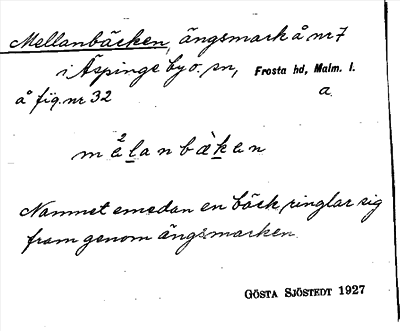 Mellanbäcken, ängsmark å nr 7
i Äspinge by o. sn, Frosta hd, Malm. l.
å fig. nr 32 a.
me²lanbàken
Namnet emedan en bäck ringlar sig
fram genom ängsmarken.
GÖSTA SJÖSTEDT 1927